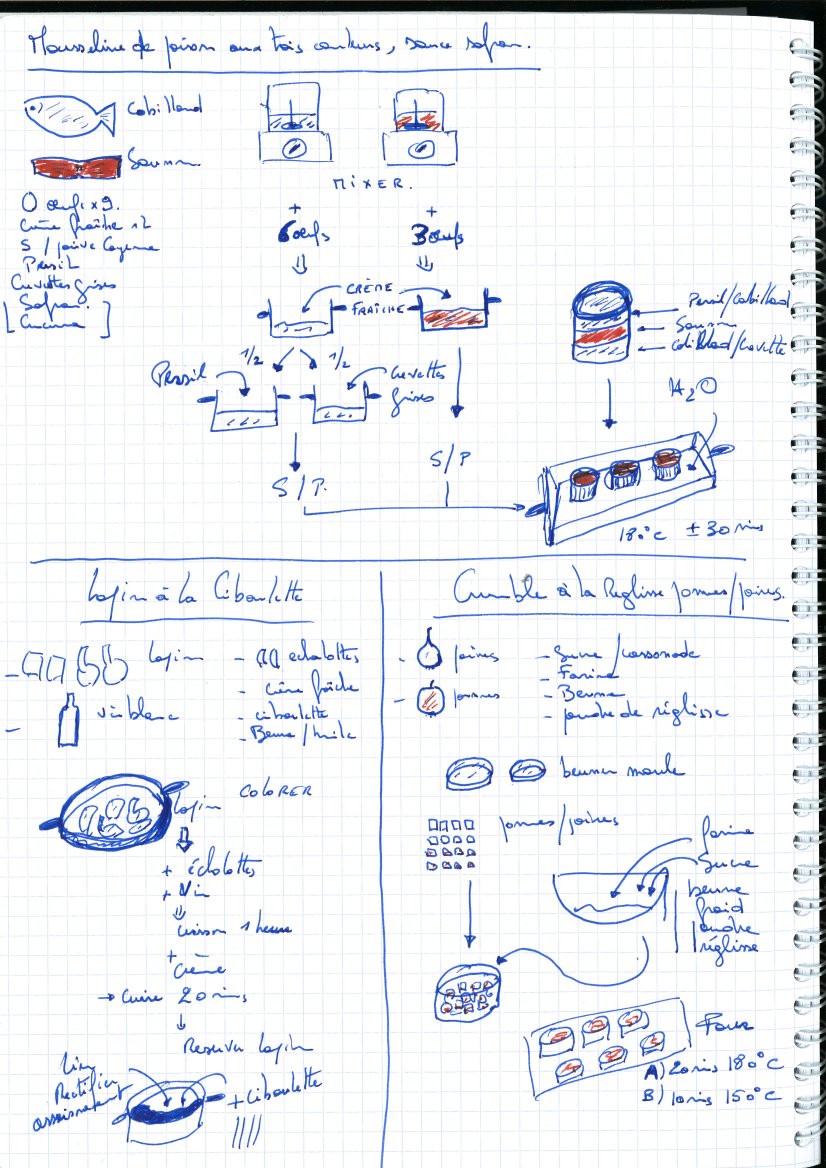 Mousseline de poisson aux trois couleurs, sauce safran.
Cabillaud
Saumon
MIXER.
Oeufs x 9.
Crème fraîche 12
S / poivre Cayenne
Persil
Crevettes grises
[ Safran.
Curcuma ]
+
6 oeufs
+
3 oeufs
CRÈME
FRAÎCHE
1/2
1/2
Persil
Crevettes
grises
S / P.
S / P
Persil/Cabillaud
Saumon
Cabillaud/Crevette
H2O
180°C ± 30 mins
Lapin à la Ciboulette
lapin
vin blanc
- échalottes
- crème fraîche
- ciboulette
- Beurre / huile
lapin
COLORER
+ échalottes
+ Vin
Cuisson 1 heure
+
Crème
→ Cuire 20 mins
Reserver lapin
Lier
Rectifier
assaisonnement
+ Ciboulette
Crumble à la Reglisse pommes/poires.
- poires
- pommes
- Sucre / cassonade
- Farine
- Beurre
- poudre de réglisse
beurrer moule
pommes/poires
farine
Sucre
beurre
froid
poudre
réglisse
Four
A) 20 mins 180°C
B) 10 mins 150°C